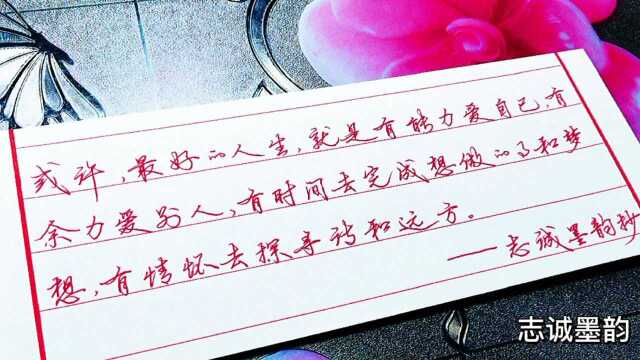 或许,最好的人生,就是有能力爱自己,有
余力爱别人,有时间去完成想做的事和梦
想,有情怀去探寻诗和远方。
——志诚墨韵抄
志诚墨韵